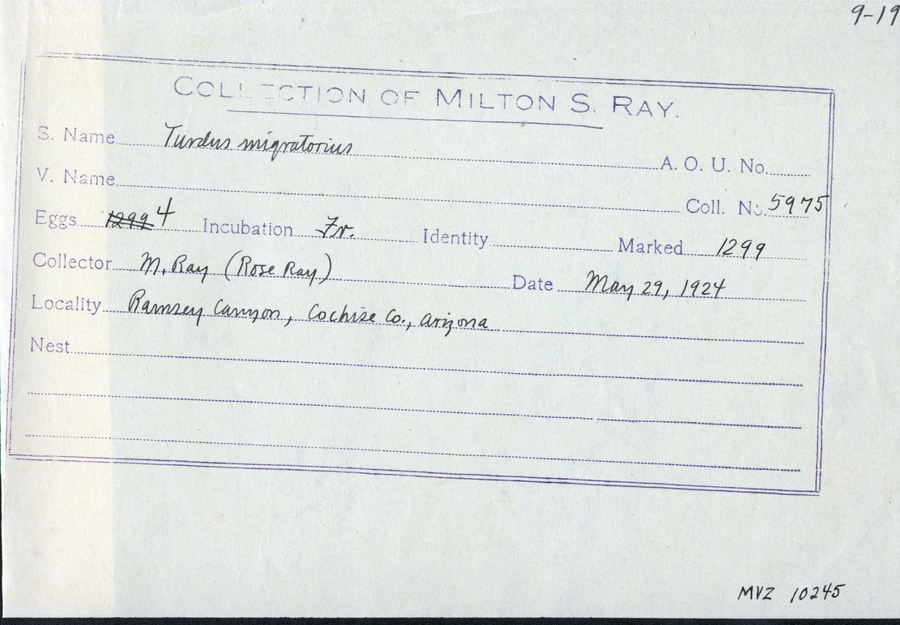 9-19
COLLECTION OF MILTON S. RAY.
S. Name Turdus migratorius A. O. U. No.
V. Name Coll. No. 5975
Eggs 1299 4 Incubation Fr. Identity Marked 1299
Collector M. Ray (Rose Ray) Date May 29, 1924
Locality Ramsey Canyon, Cochise Co., Arizona
Nest
MVZ 10245